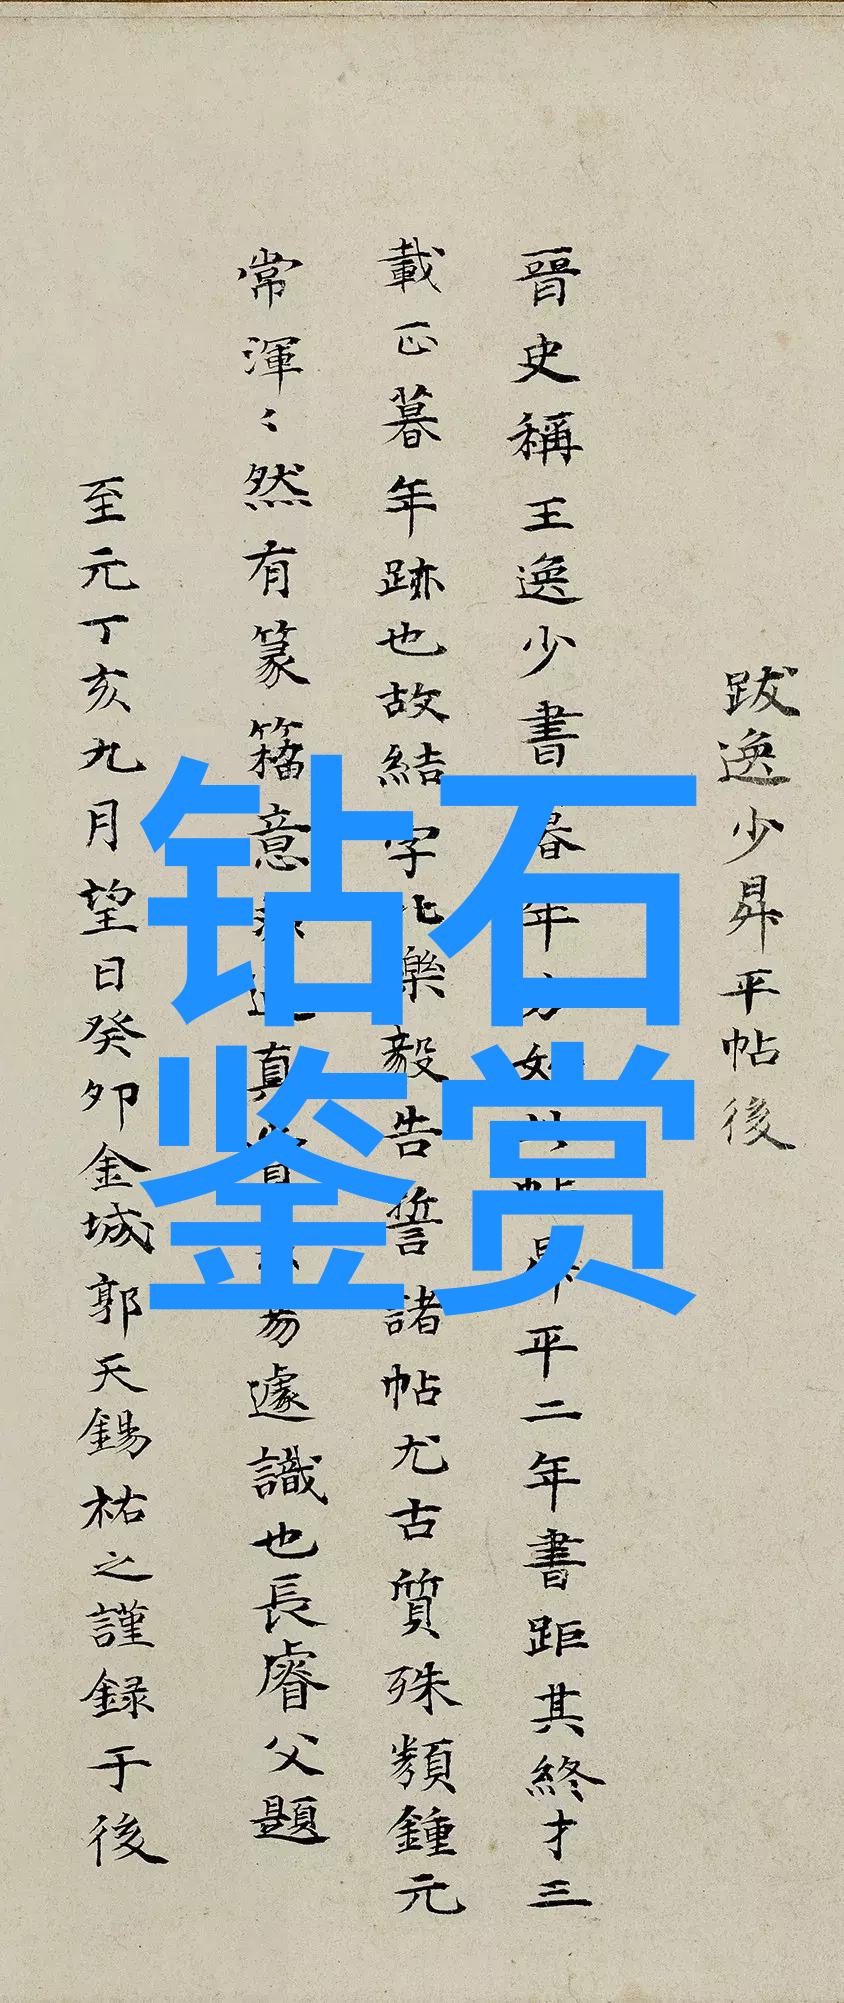 跋逸少昇平帖後
晉史稱王逸少書暮年方妙此帖昇平二年書距其終才三
載正暮年跡也故結字比樂毅告誓諸帖尤古質殊類鍾元
常渾〻然有篆籀意非造真賞未易遽識也長睿父題
至元丁亥九月望日癸卯金城郭天錫祐之謹録于後
钻石
鉴赏